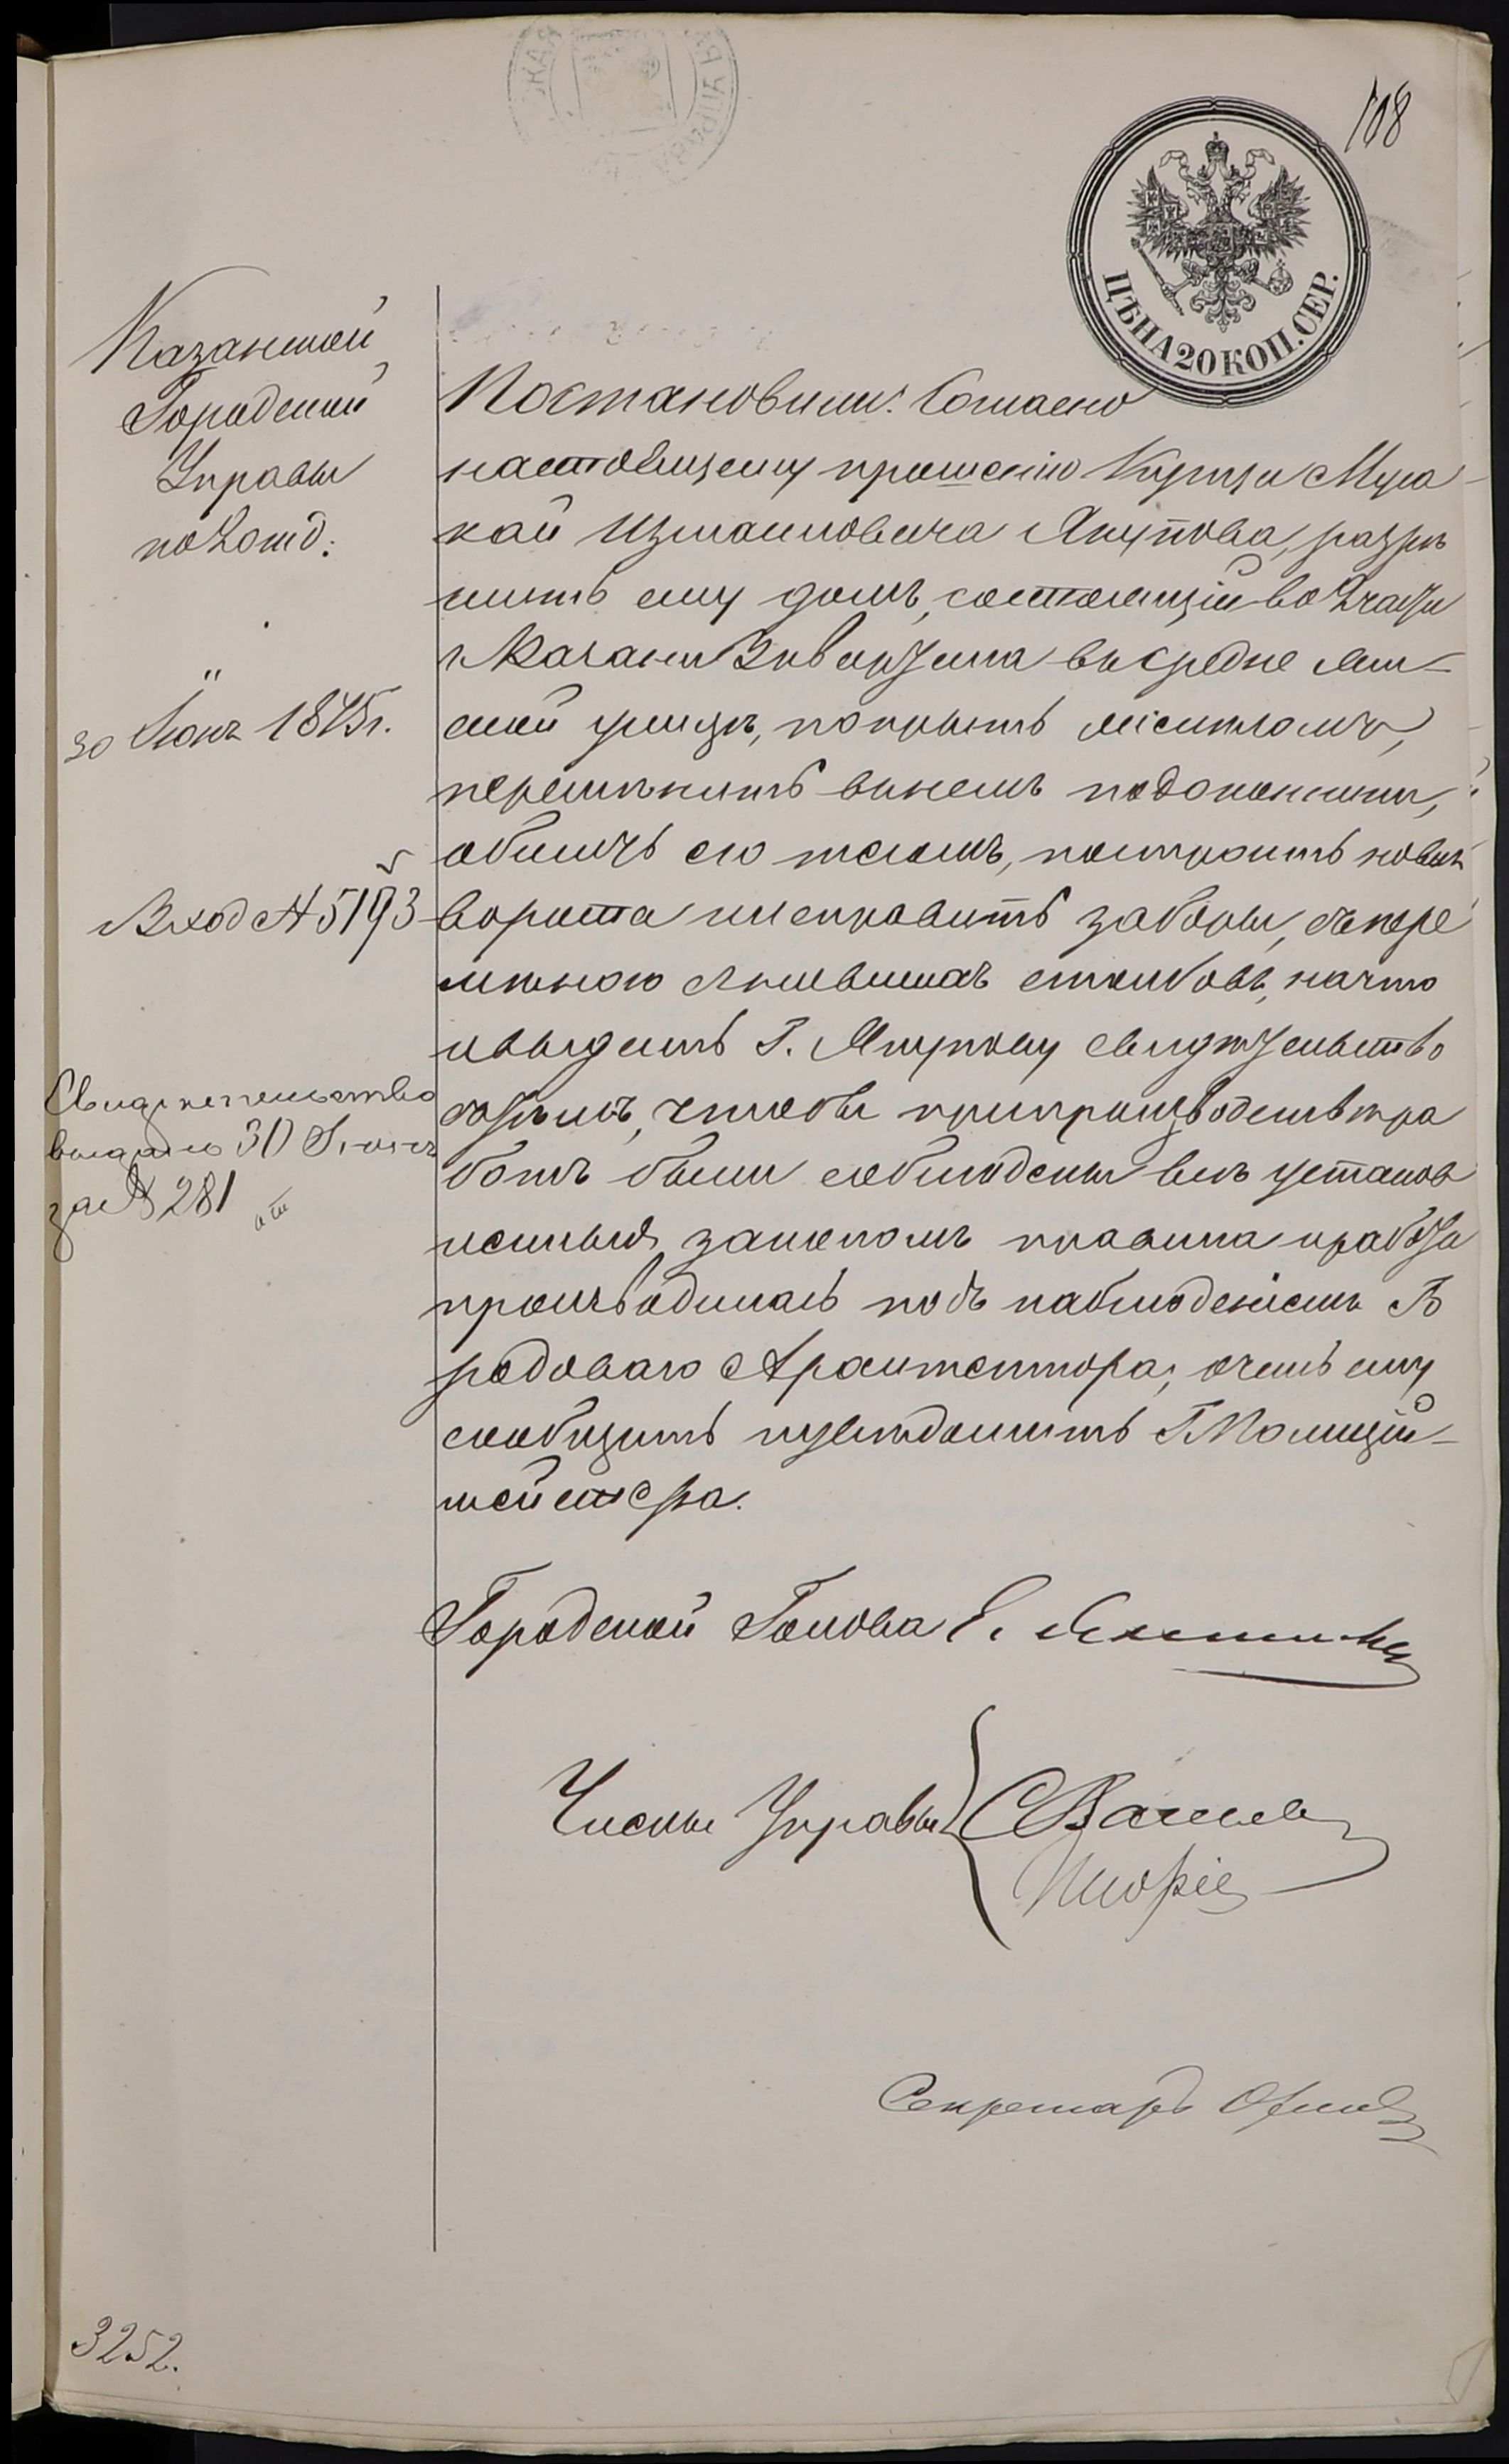 108
ЦѢНА 20 КОП. СЕР.
Казанской
Городской
Управы
по 2 отд:
30 Іюня 1875 г.
Вход № 5193
Свидѣтельство
выдано 30 Іюня
за № 281
Постановили: Согласно
настоящему прошенію Купца Муса
кай Измаиловича Якупова, разрѣ
шить ему домъ, состоящій во 2 части
г. Казани въ
ской улицѣ, покрыть
перемѣнить въ немъ подоконники,
обшить его тесомъ, построить новыя
ворота и исправить заборы, съ пере
мѣною сгнившихъ столбовъ, на что
и выдать Г. Якупову свидѣтельство
съ тѣмъ, чтобы при производствѣ ра
ботъ были соблюдены всѣ установ
ленныя закономъ правила и работа
производилась подъ наблюденіемъ Го
родоваго Архитектора, о чемъ ему
сообщить и увѣдомить Г. Полицій-
мейстера.
Городской Голова
Члены Управы
Секретарь
3252.